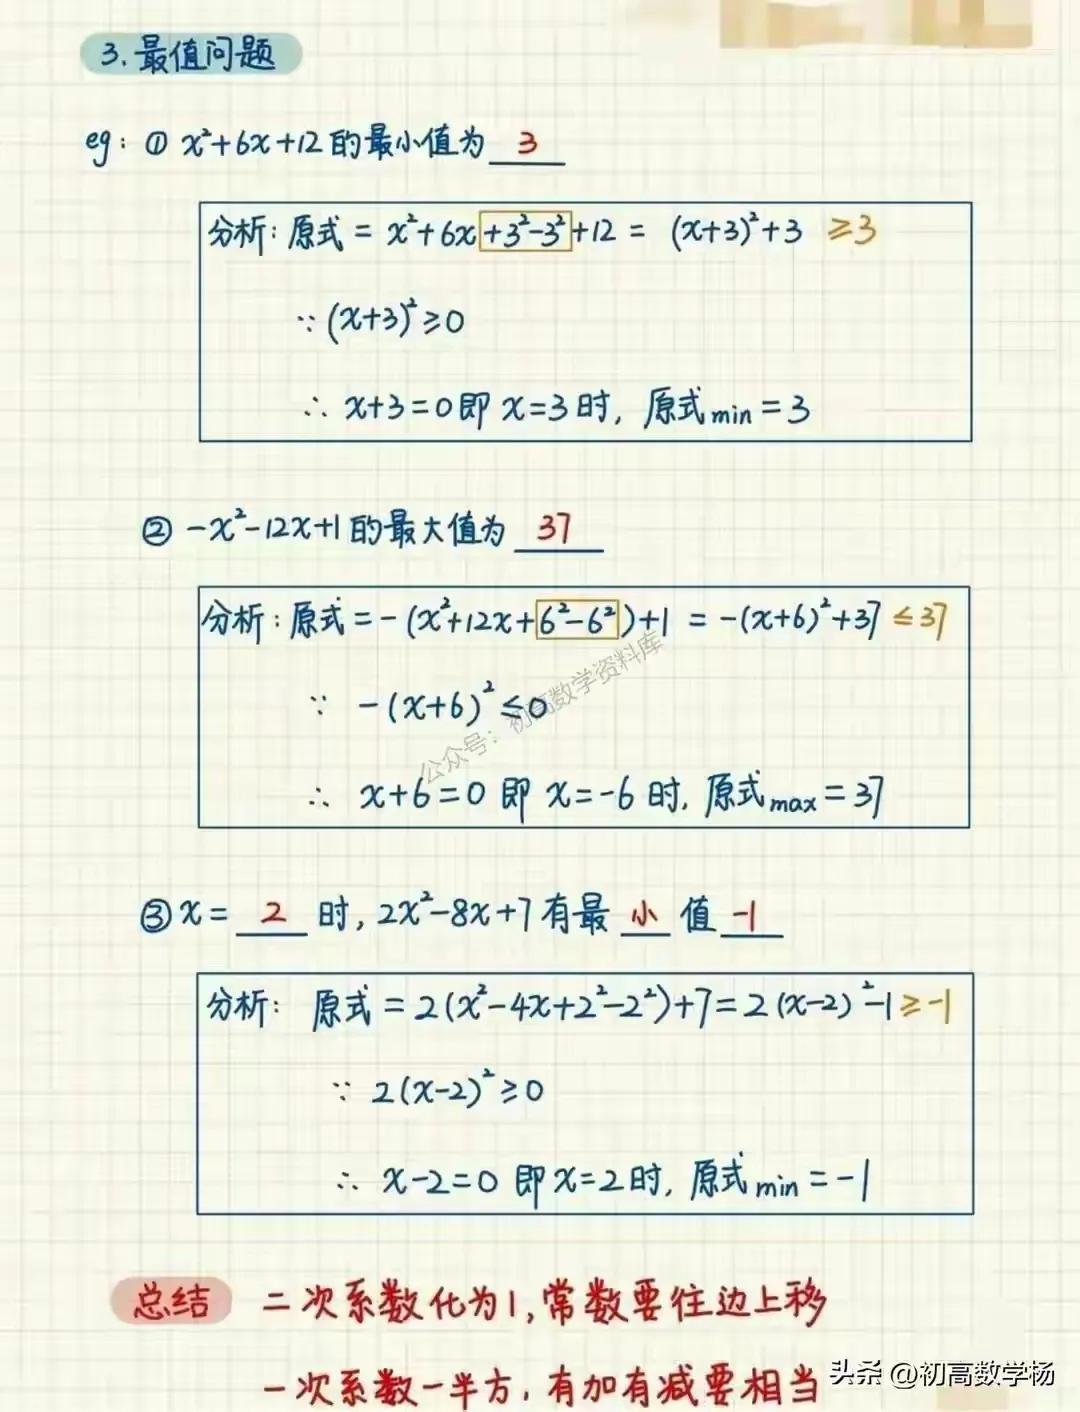 3.最值问题
eg: ① x²+6x+12的最小值为 3
分析:原式 = x²+6x+3²-3²+12 = (x+3)²+3 ≥3
∵(x+3)²≥0
∴ x+3=0即 x=3时, 原式min=3
② -x²-12x+1的最大值为 37
分析:原式=-(x²+12x+6²-6²)+1 = -(x+6)²+37 ≤37
∵ -(x+6)²≤0
∴ x+6=0 即 x=-6 时, 原式max=37
公众号：初高数学资料库
③ x= 2 时, 2x²-8x+7有最 小 值 -1
分析: 原式=2(x²-4x+2²-2²)+7=2(x-2)²-1≥-1
∵ 2(x-2)²≥0
∴ x-2=0 即x=2时, 原式min=-1
总结 二次系数化为1,常数要往边上移
一次系数一半方,有加有减要相当
头条 @初高数学杨